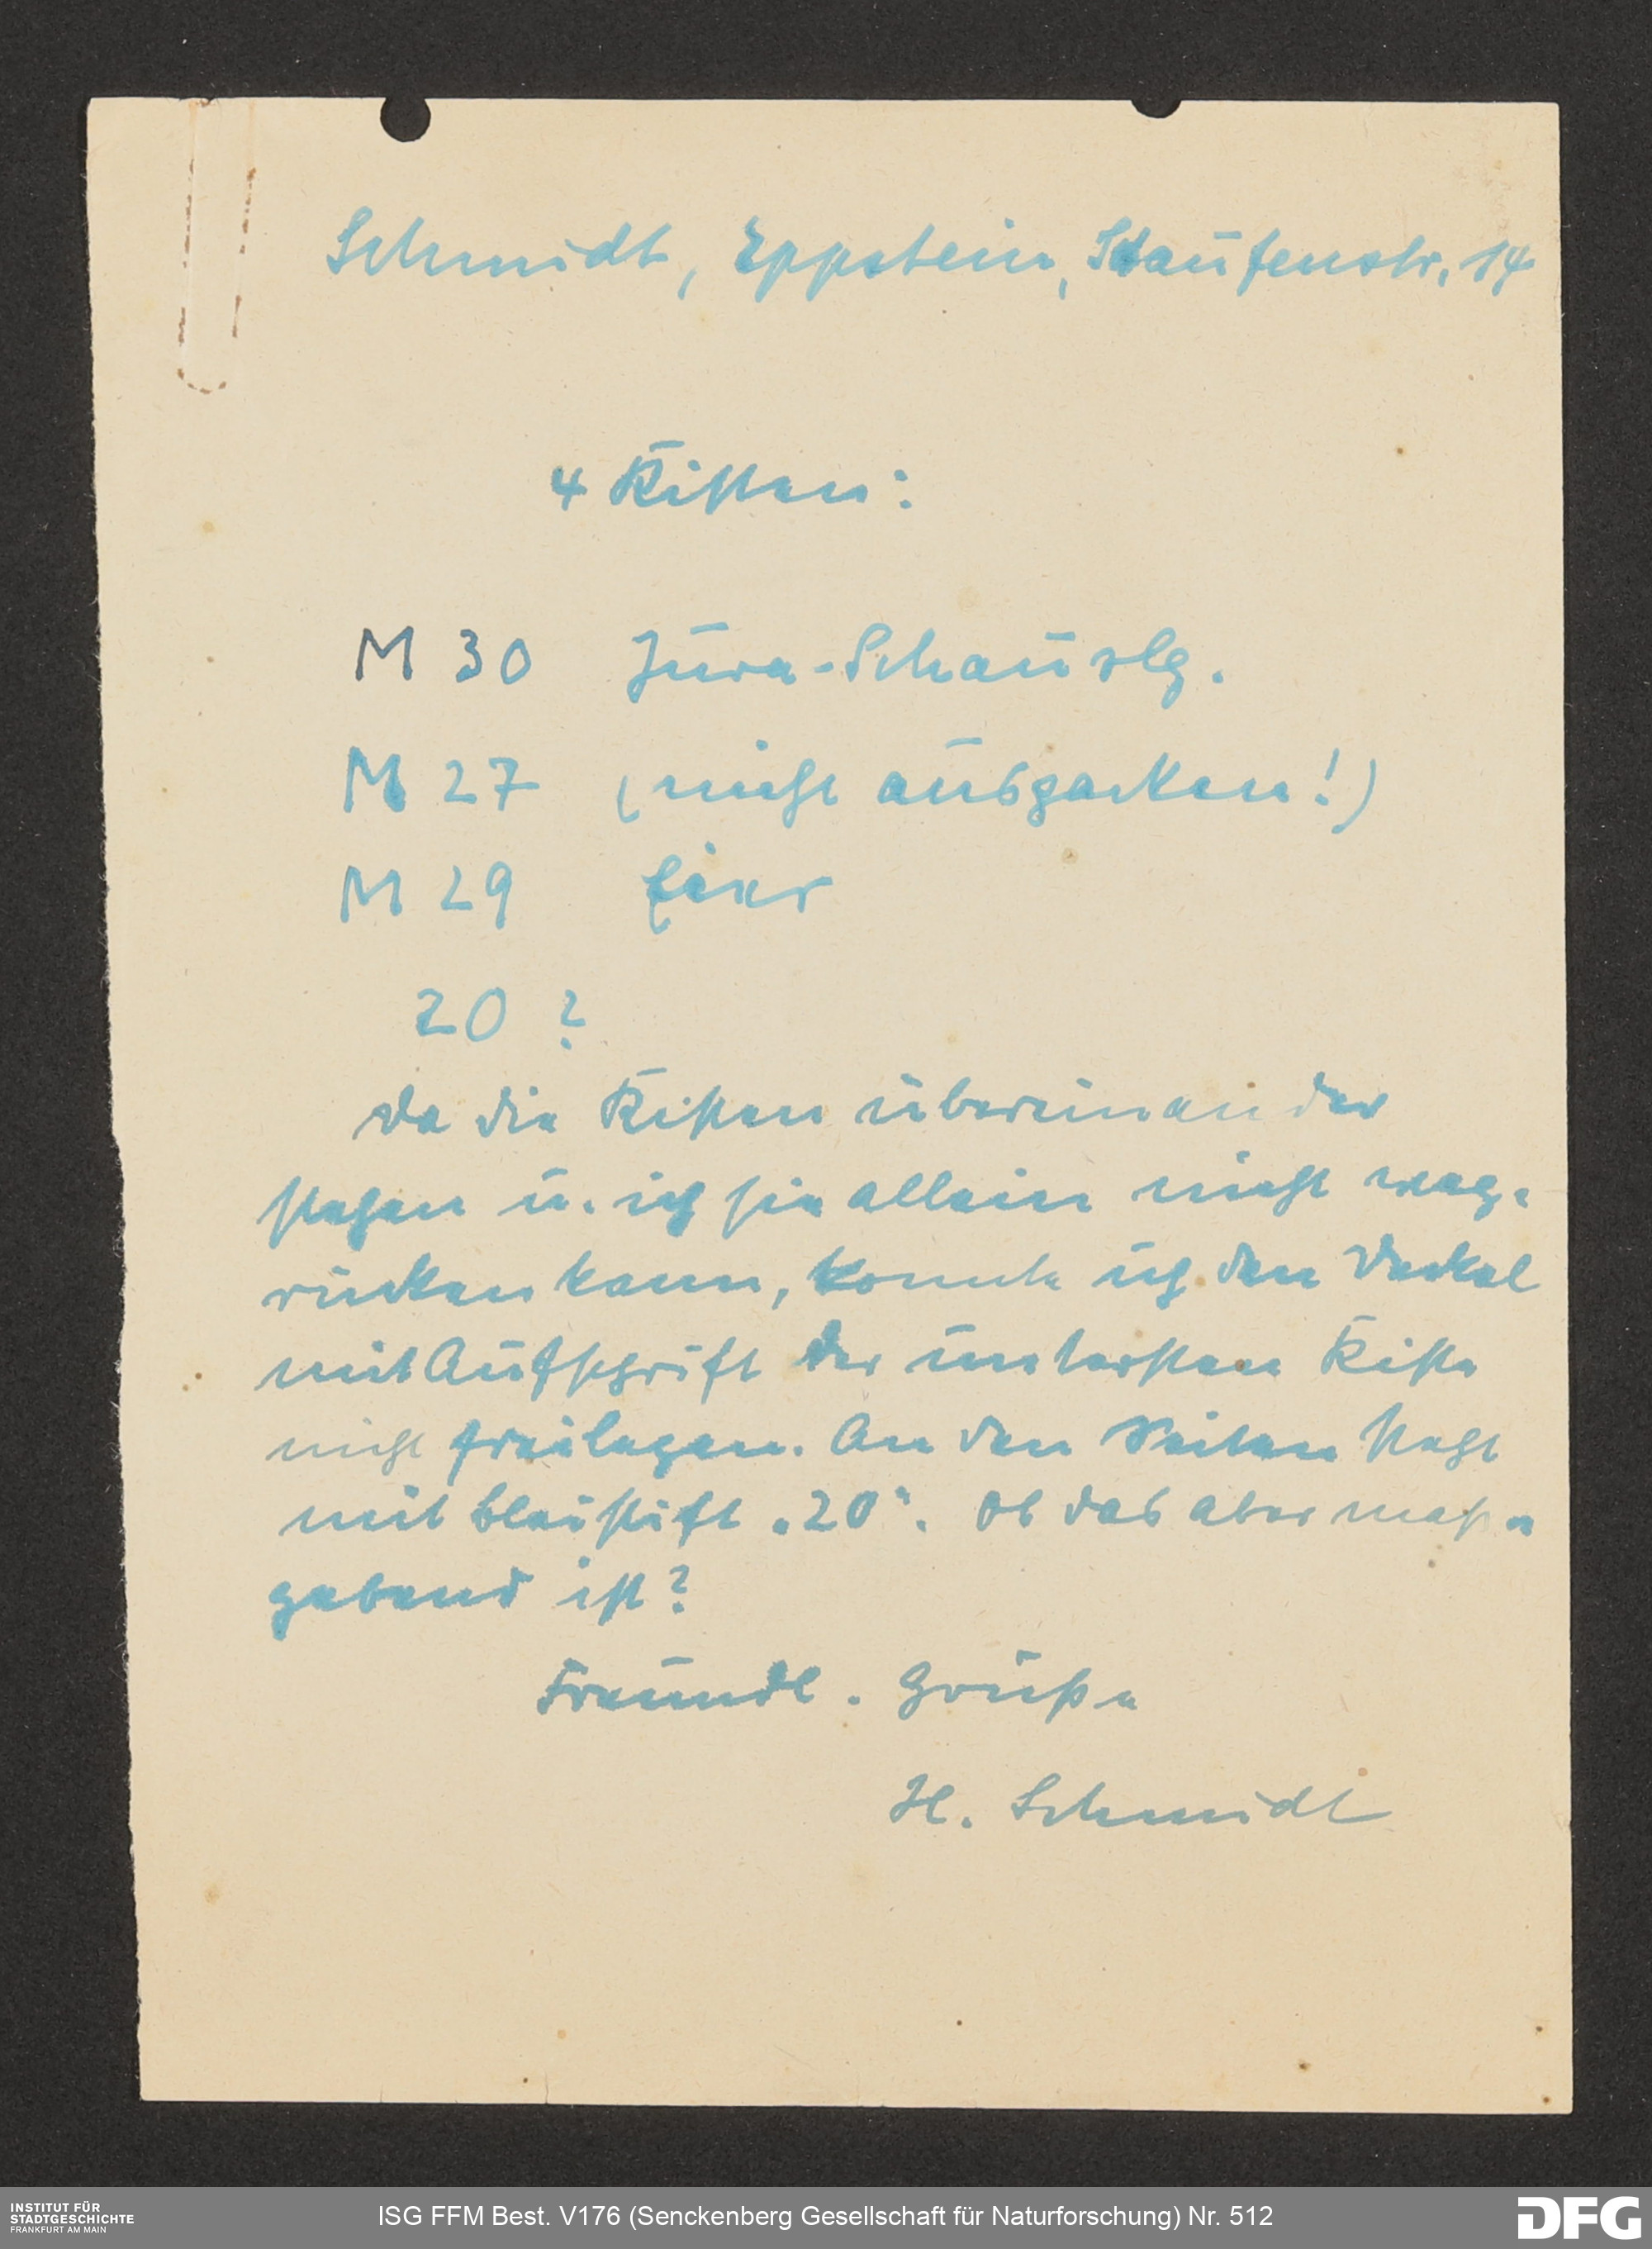 Schmidt, Eppstein, Staufenstr. 14
4 Kisten:
M 30 Jura-Schauslg.
M 27 (nicht auspacken!)
M 29 Eier
20 ?
Da die Kisten übereinander
stehen u. ich sie allein nicht weg-
rücken kann, konnte ich den Deckel
mit Aufschrift der untersten Kiste
nicht freilegen. An den Seiten steht
mit Blaustift „20“. Ob das aber maß-
gebend ist?
Freundl. Grüße
H. Schmidt
INSTITUT FÜR
STADTGESCHICHTE
FRANKFURT AM MAIN
ISG FFM Best. V176 (Senckenberg Gesellschaft für Naturforschung) Nr. 512
DFG